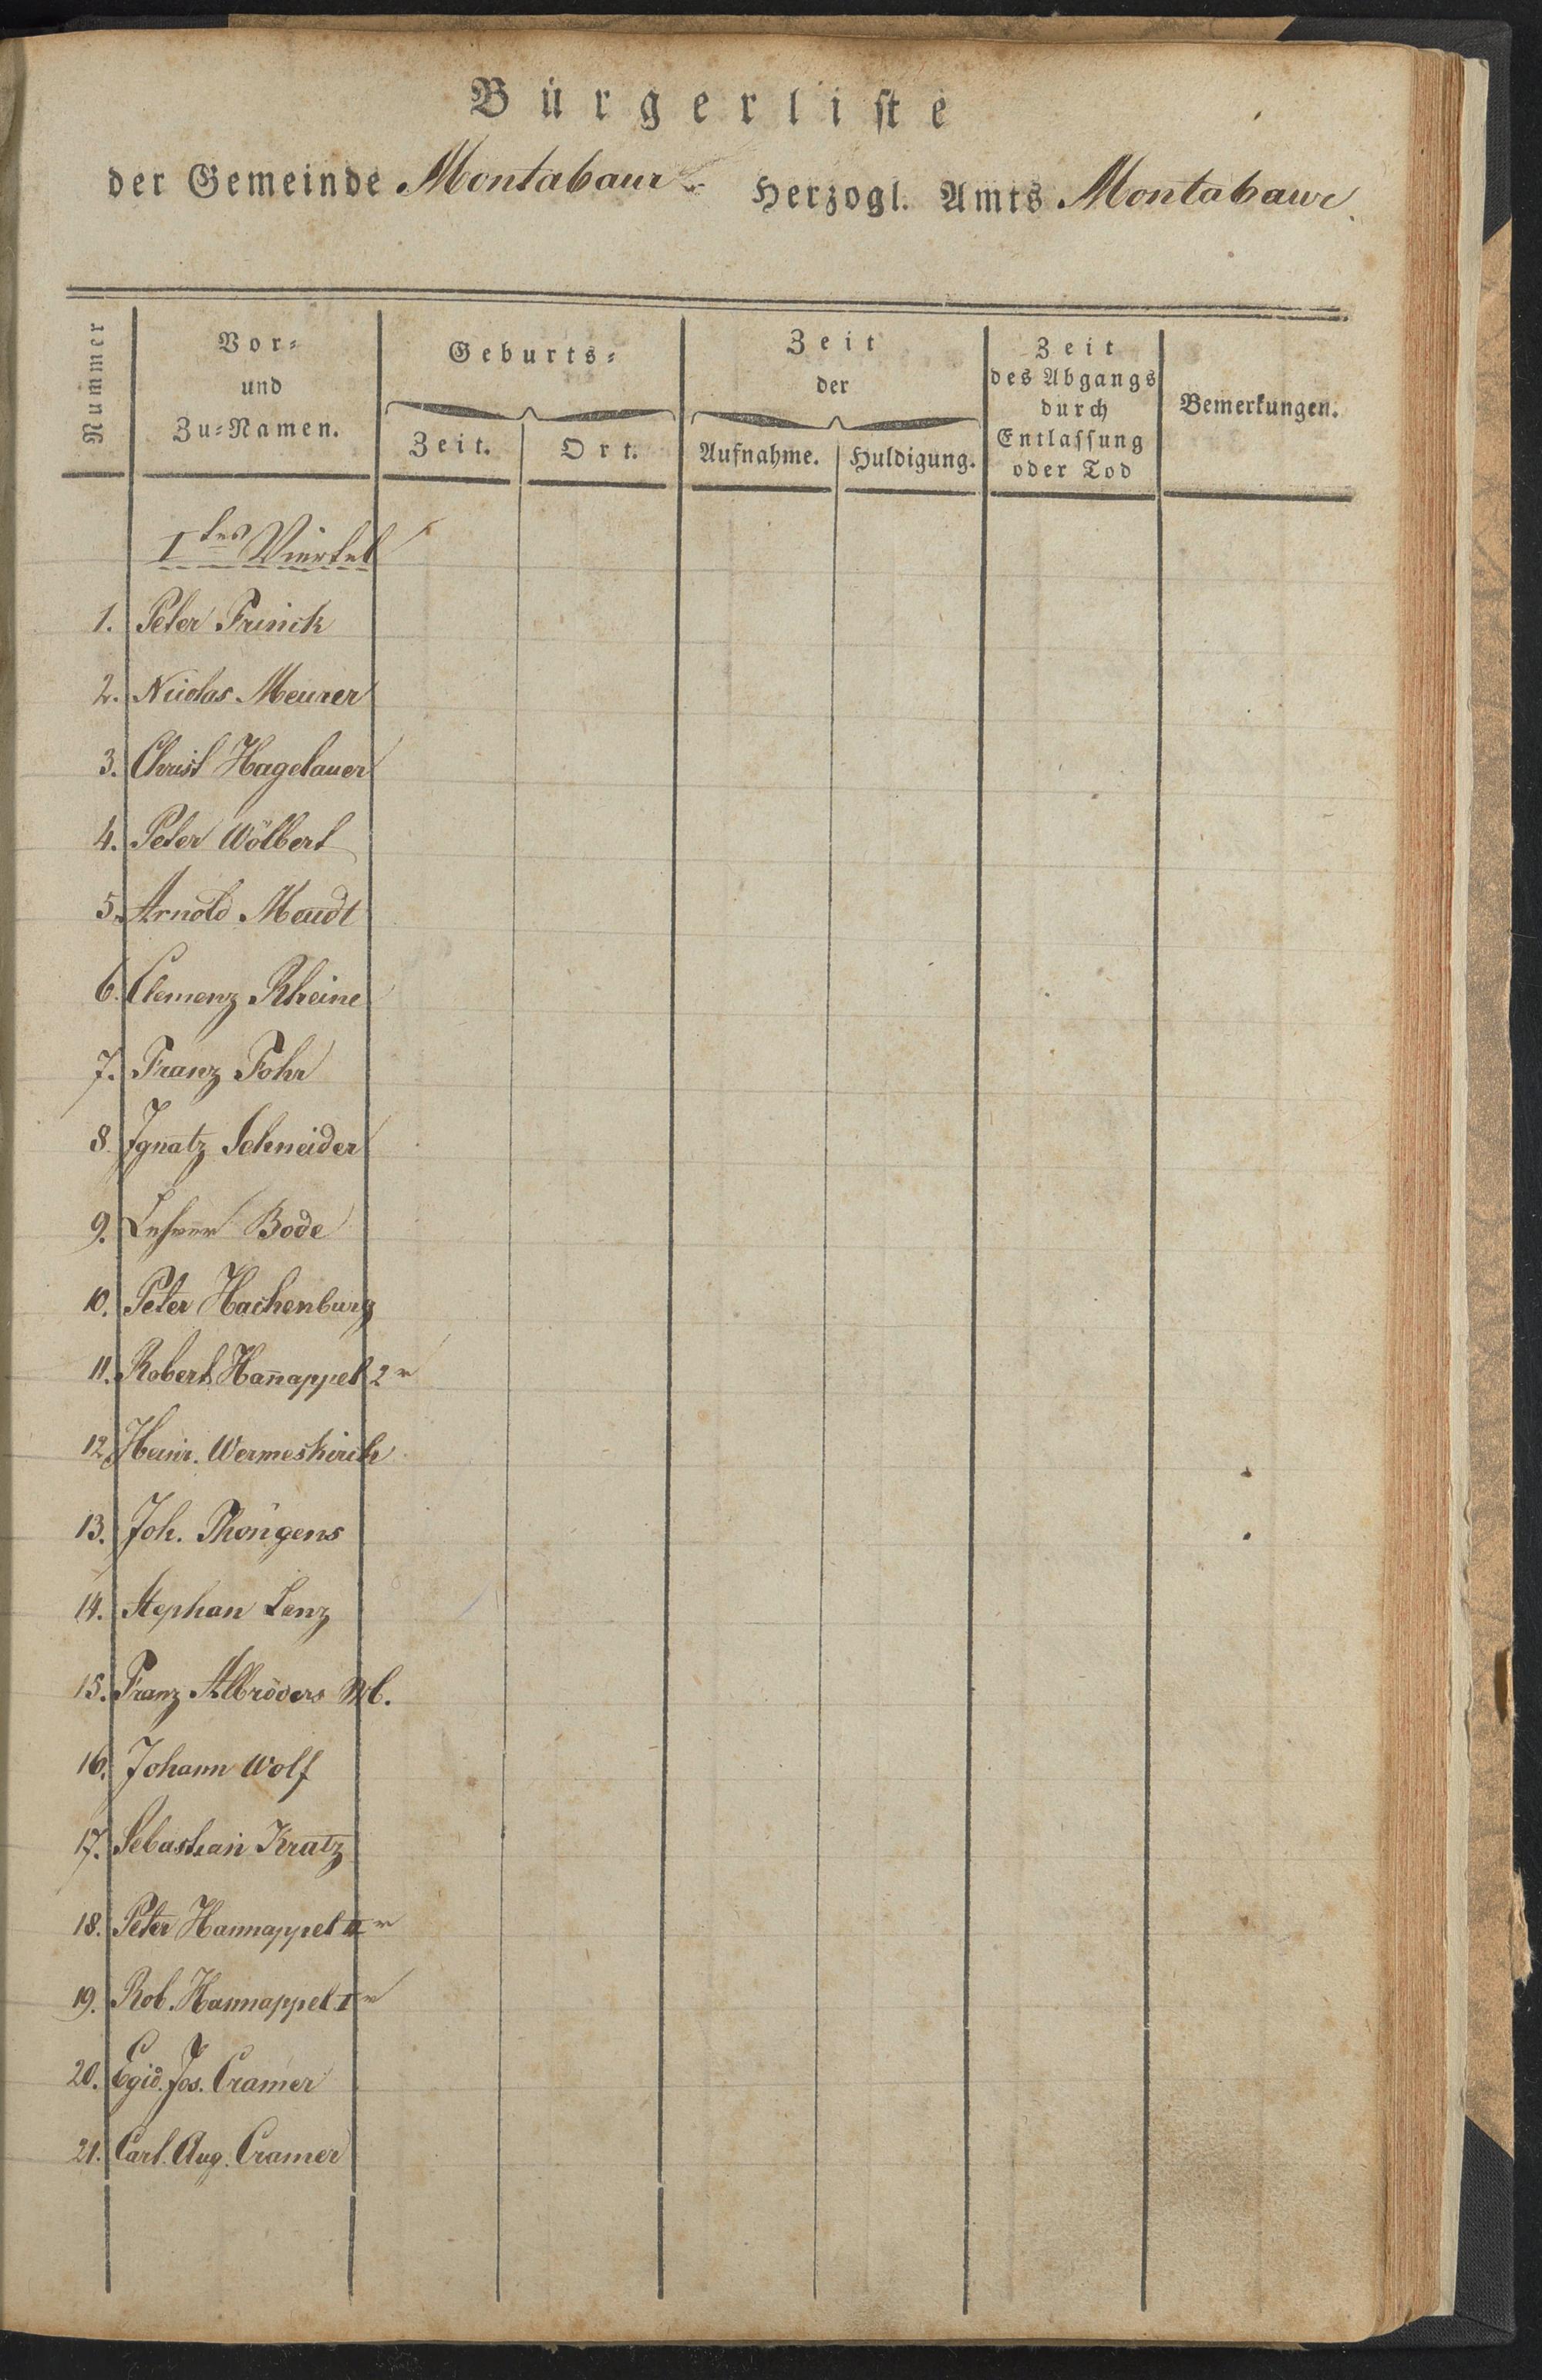 Bürgerliste
der Gemeinde Montabaur Herzogl. Amts Montabaur
Nummer
Vor-
und
Zu-Namen.
Geburts-
Zeit.
Ort.
Zeit
der
Aufnahme.
Huldigung.
Zeit
des Abgangs
durch
Entlassung
oder Tod
Bemerkungen.
Ites Viertel
1. Peter Frinck
2. Nicolas Meurer
3. Christ Hagelauer
4. Peter Wölbert
5. Arnold Meudt
6. Clemenz Rheine
7. Franz Fohr
8. Ignatz Schneider
9. Lehrer Bode
10. Peter Hachenburg
11. Robert Han̄appel 2r
12. Heinr. Wermeskirch
13. Joh. Thöngens
14. Stephan Lenz
15. Franz Albröders Wb.
16. Johann Wolf
17. Sebastian Kratz
18. Peter Hannappel IIr
19. Rob. Hannappel Ir
20. Egid. Jos. Cramer
21. Carl. Aug. Cramer